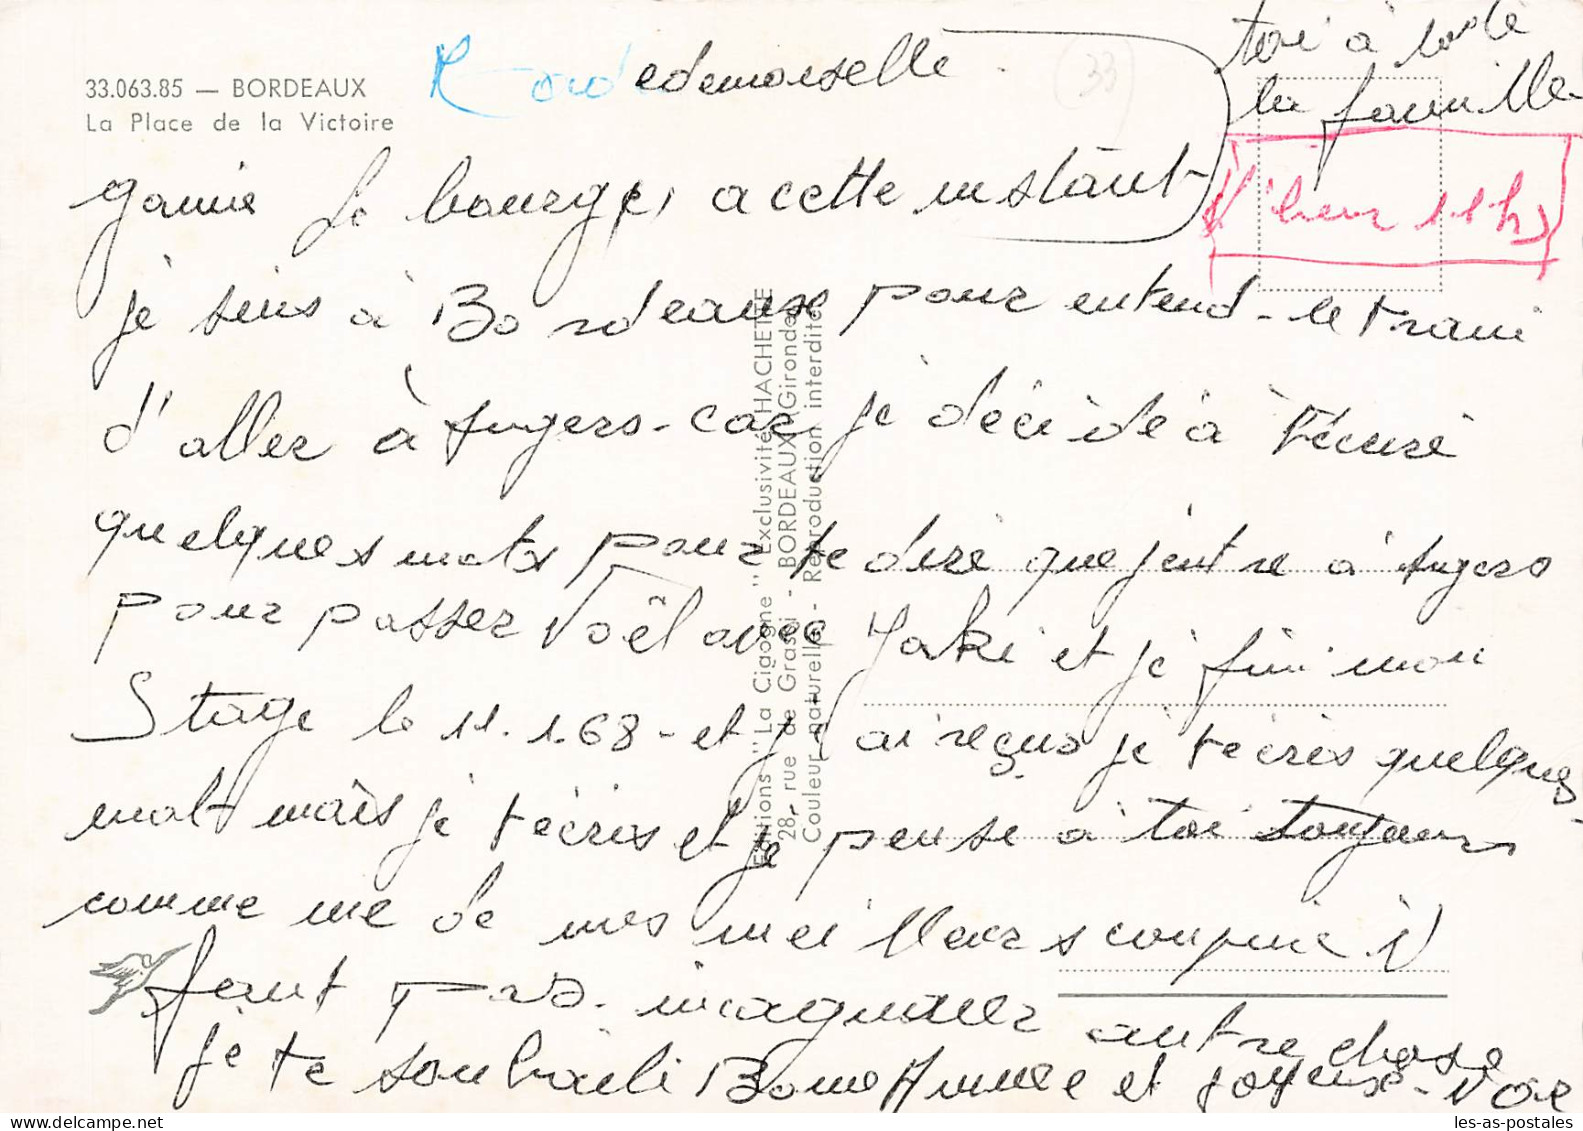 33.063.85 — BORDEAUX
La Place de la Victoire
edemoiselle
toi à toute
la famille
(33)
l'heure 11h
Le bourge, a cette instant
je suis à Bordeause pour entend-le train
d'aller à Angers-car je décidé à t'écuré
quelques mots pour te dire que j'entre à Angers
pour passer Noël avec Jaki et je fini mon
Stage le 11.1.68 - et j'ai reçus je t'écris quelques
mots mais je t'écris et je pense à toi toujours
comme une de mes meilleurs coupine il
faut pas imaginer autre chose
je te souhaite Bonne Année et joyeux-Noe
Editions "La Cigogne" Exclusivité HACHETTE
28, rue de Grassi - BORDEAUX (Gironde)
Couleur naturelle - Reproduction interdite
les-as-postales